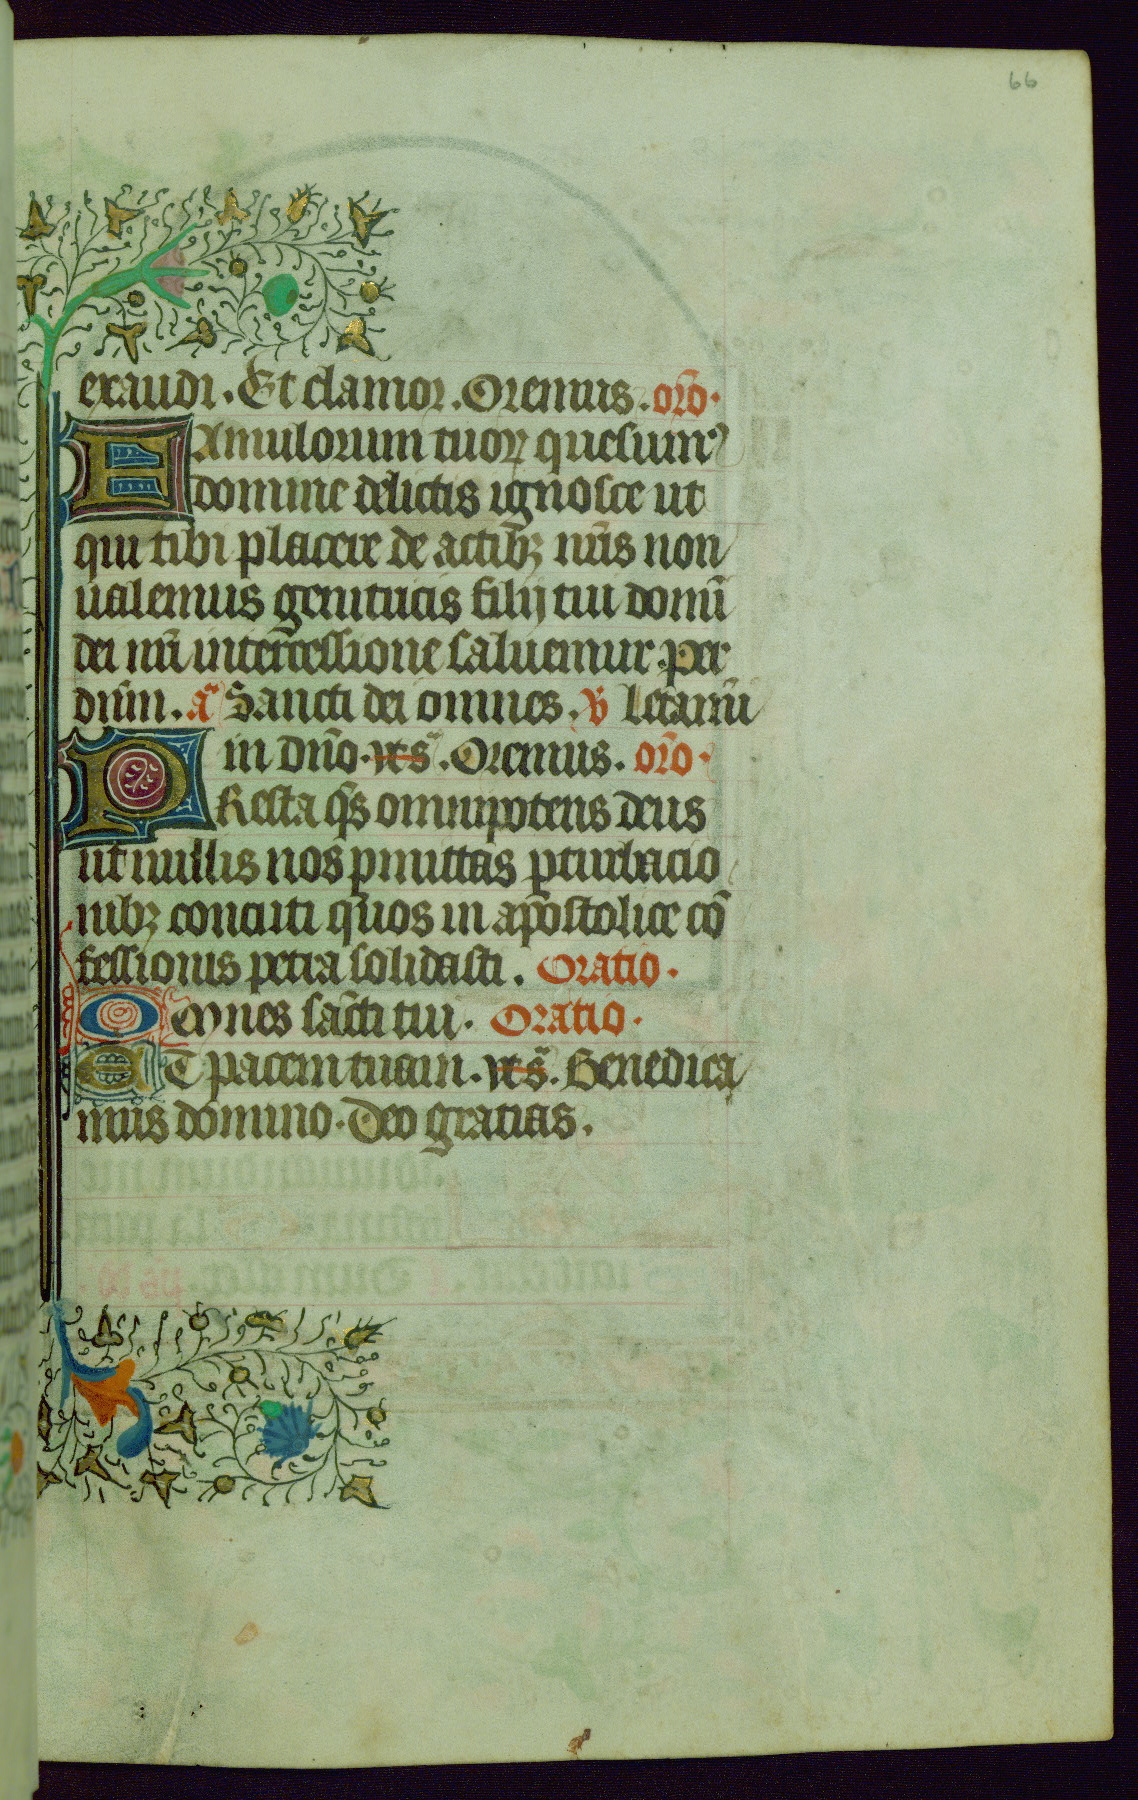 66
exaudi. Et clamor. Oremus. orō.
FAmulorum tuoꝝ quesumꝰ
domine delictis ignosce ut
qui tibi placere de actibꝫ nr̄is non
ualemus genitricis filij tui domī
dei nr̄i intercessione saluemur. per
dnm̄. aͣ Sancti dei omnes. ꝟ Letamī
in dn̄o. ꝟsͣ. Oremus. orō.
PResta qs̄ omnipotens deus
ut nullis nos ꝑmittas ꝑturbacio
nibꝫ concuti quos in apostolice cō
fessionis petra solidasti. Oratio.
Omnes sācti tui. Oratio.
ET pacem tuam. ꝟsͣ. Benedica
mus domino. Deo gratias.